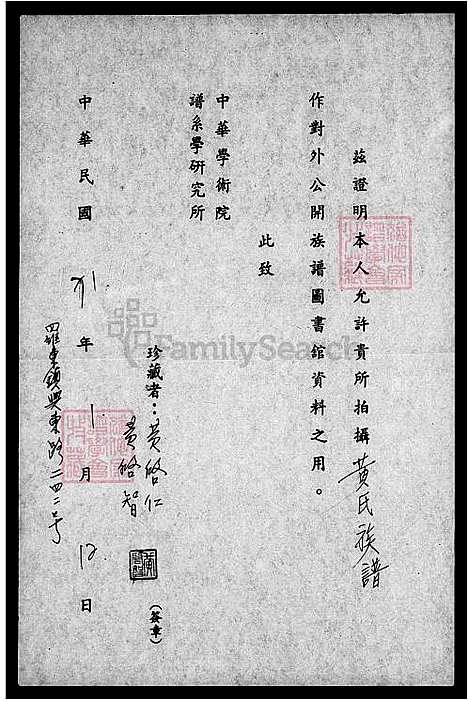 茲證明本人允許貴所拍攝黃氏族譜
作對外公開族譜圖書館資料之用。
此致
中華學術院
譜系學研究所
珍藏者：黃啓仁
黃啓智
(簽章)
中華民國71年1月12日
羅東鎮興東路二四二号
FamilySearch